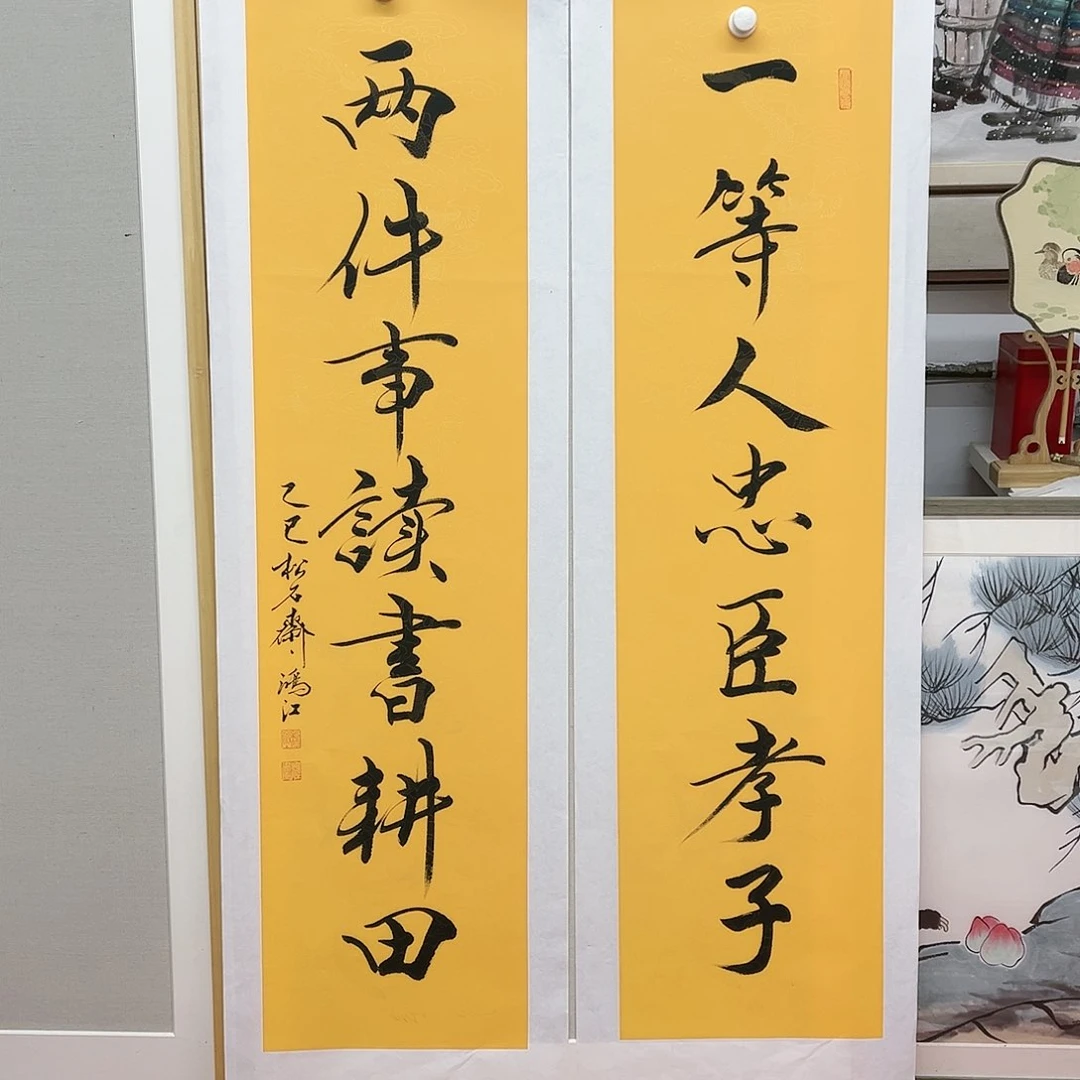 一等人忠臣孝子
两件事讀書耕田
乙巳松石齋鴻江